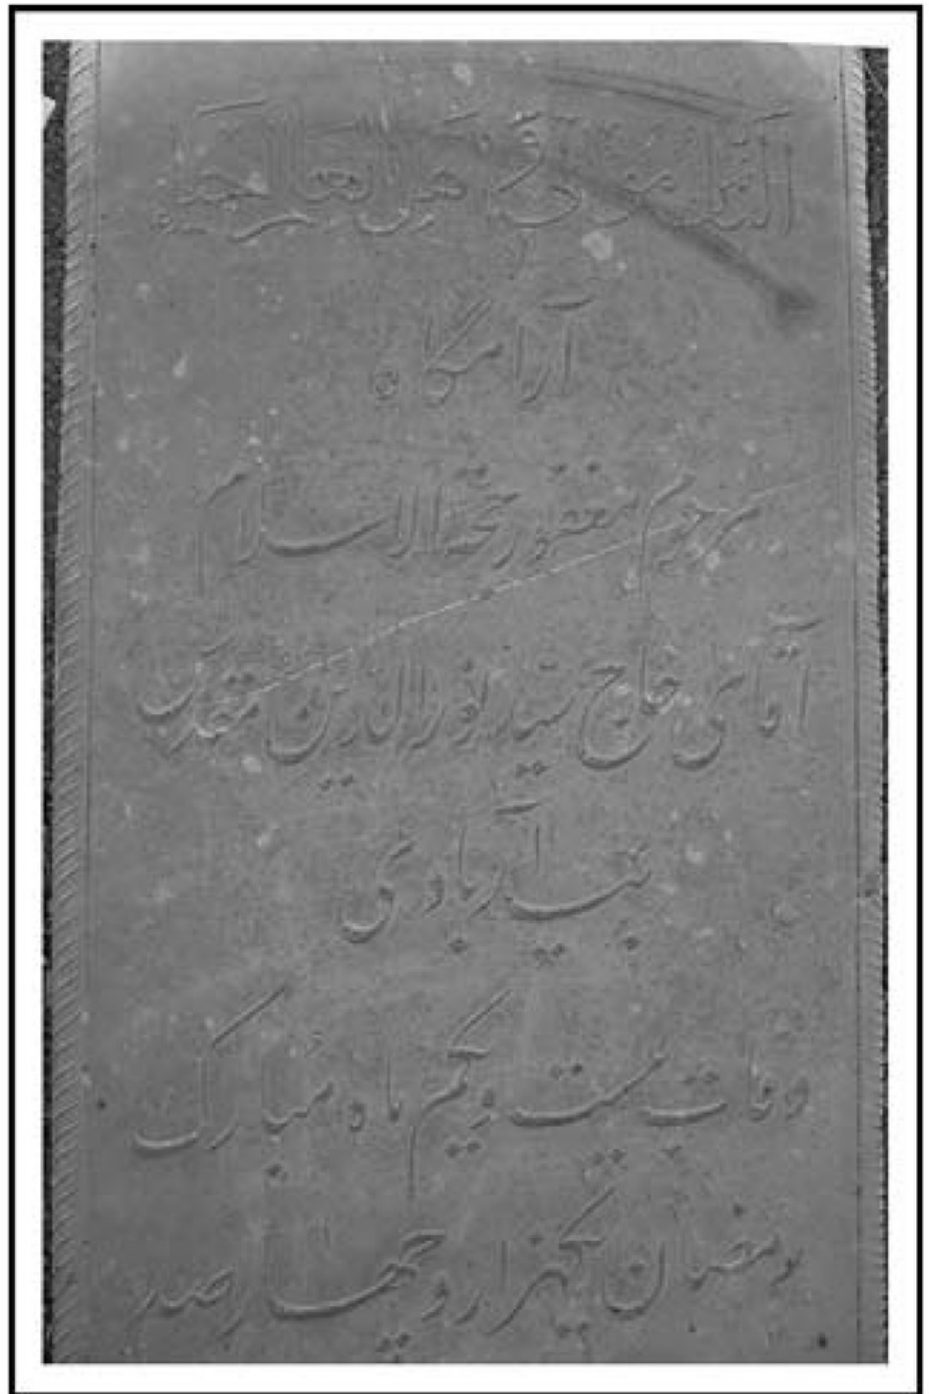 آرامگاه
مرحوم مغفور حجة الاسلام
آقای حاج سید نورالدین مقدس
بیدآبادی
وفات بیست و یکم ماه مبارک
رمضان یکهزار و چهارصد